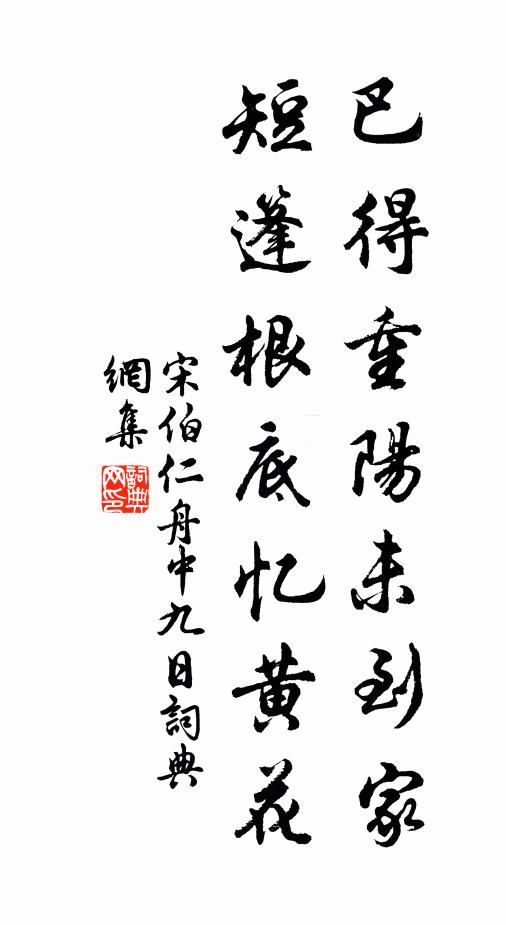 巴得重陽未到家
短蓬根底忆黄花
宋伯仁舟中九日詞典
網集
詞典網印